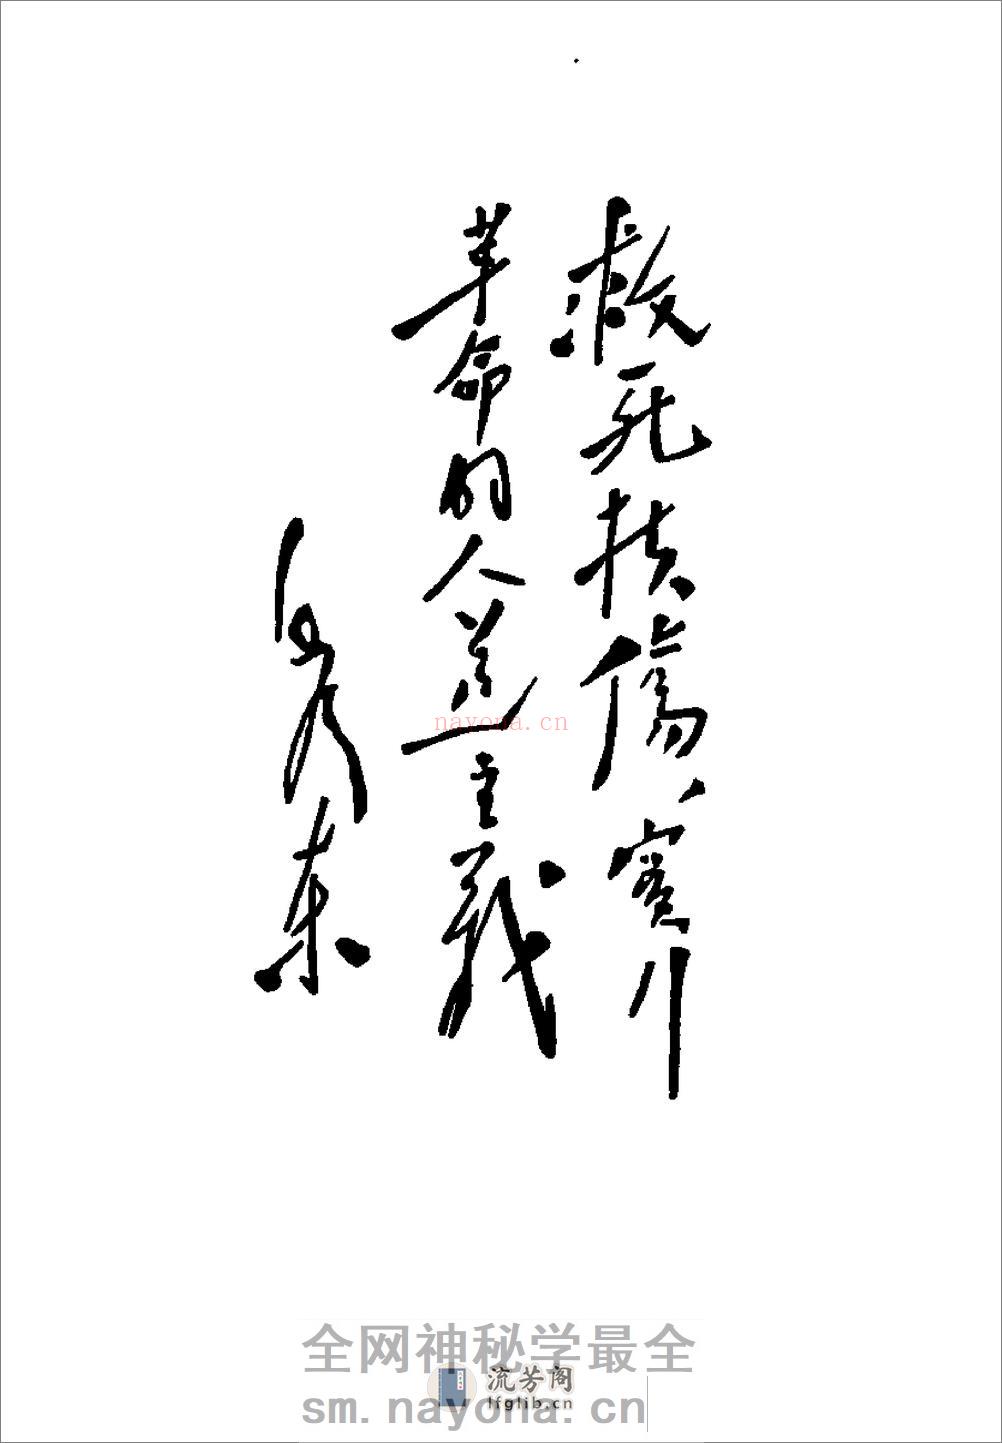 救死扶傷、實行
革命的人道主義
毛澤东
nayona.cn
全网神秘学最全
流芳阁
lfglib.cn
sm.nayona.cn